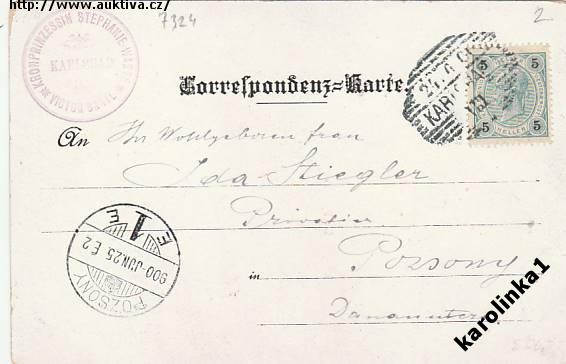 www.auktiva.cz/
7324
2
KRONPRINZESSIN STEPHANIE-WARTE
KARLSBAD
VICTOR BASIL
Correspondenz-Karte.
5 5
5 HELLER 5
An Ihr Wohlgeboren frau
Ida Stiegler
Privatier
in Pozsony
POZSONY
900 JUN. 25. E 2
E 1 E
karolinka1